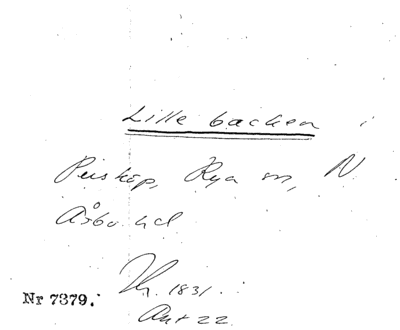 Lille backen i
Perstorp, Rya sn, N
Åsbo hd
Nr 7379. 1831.
Akt 22